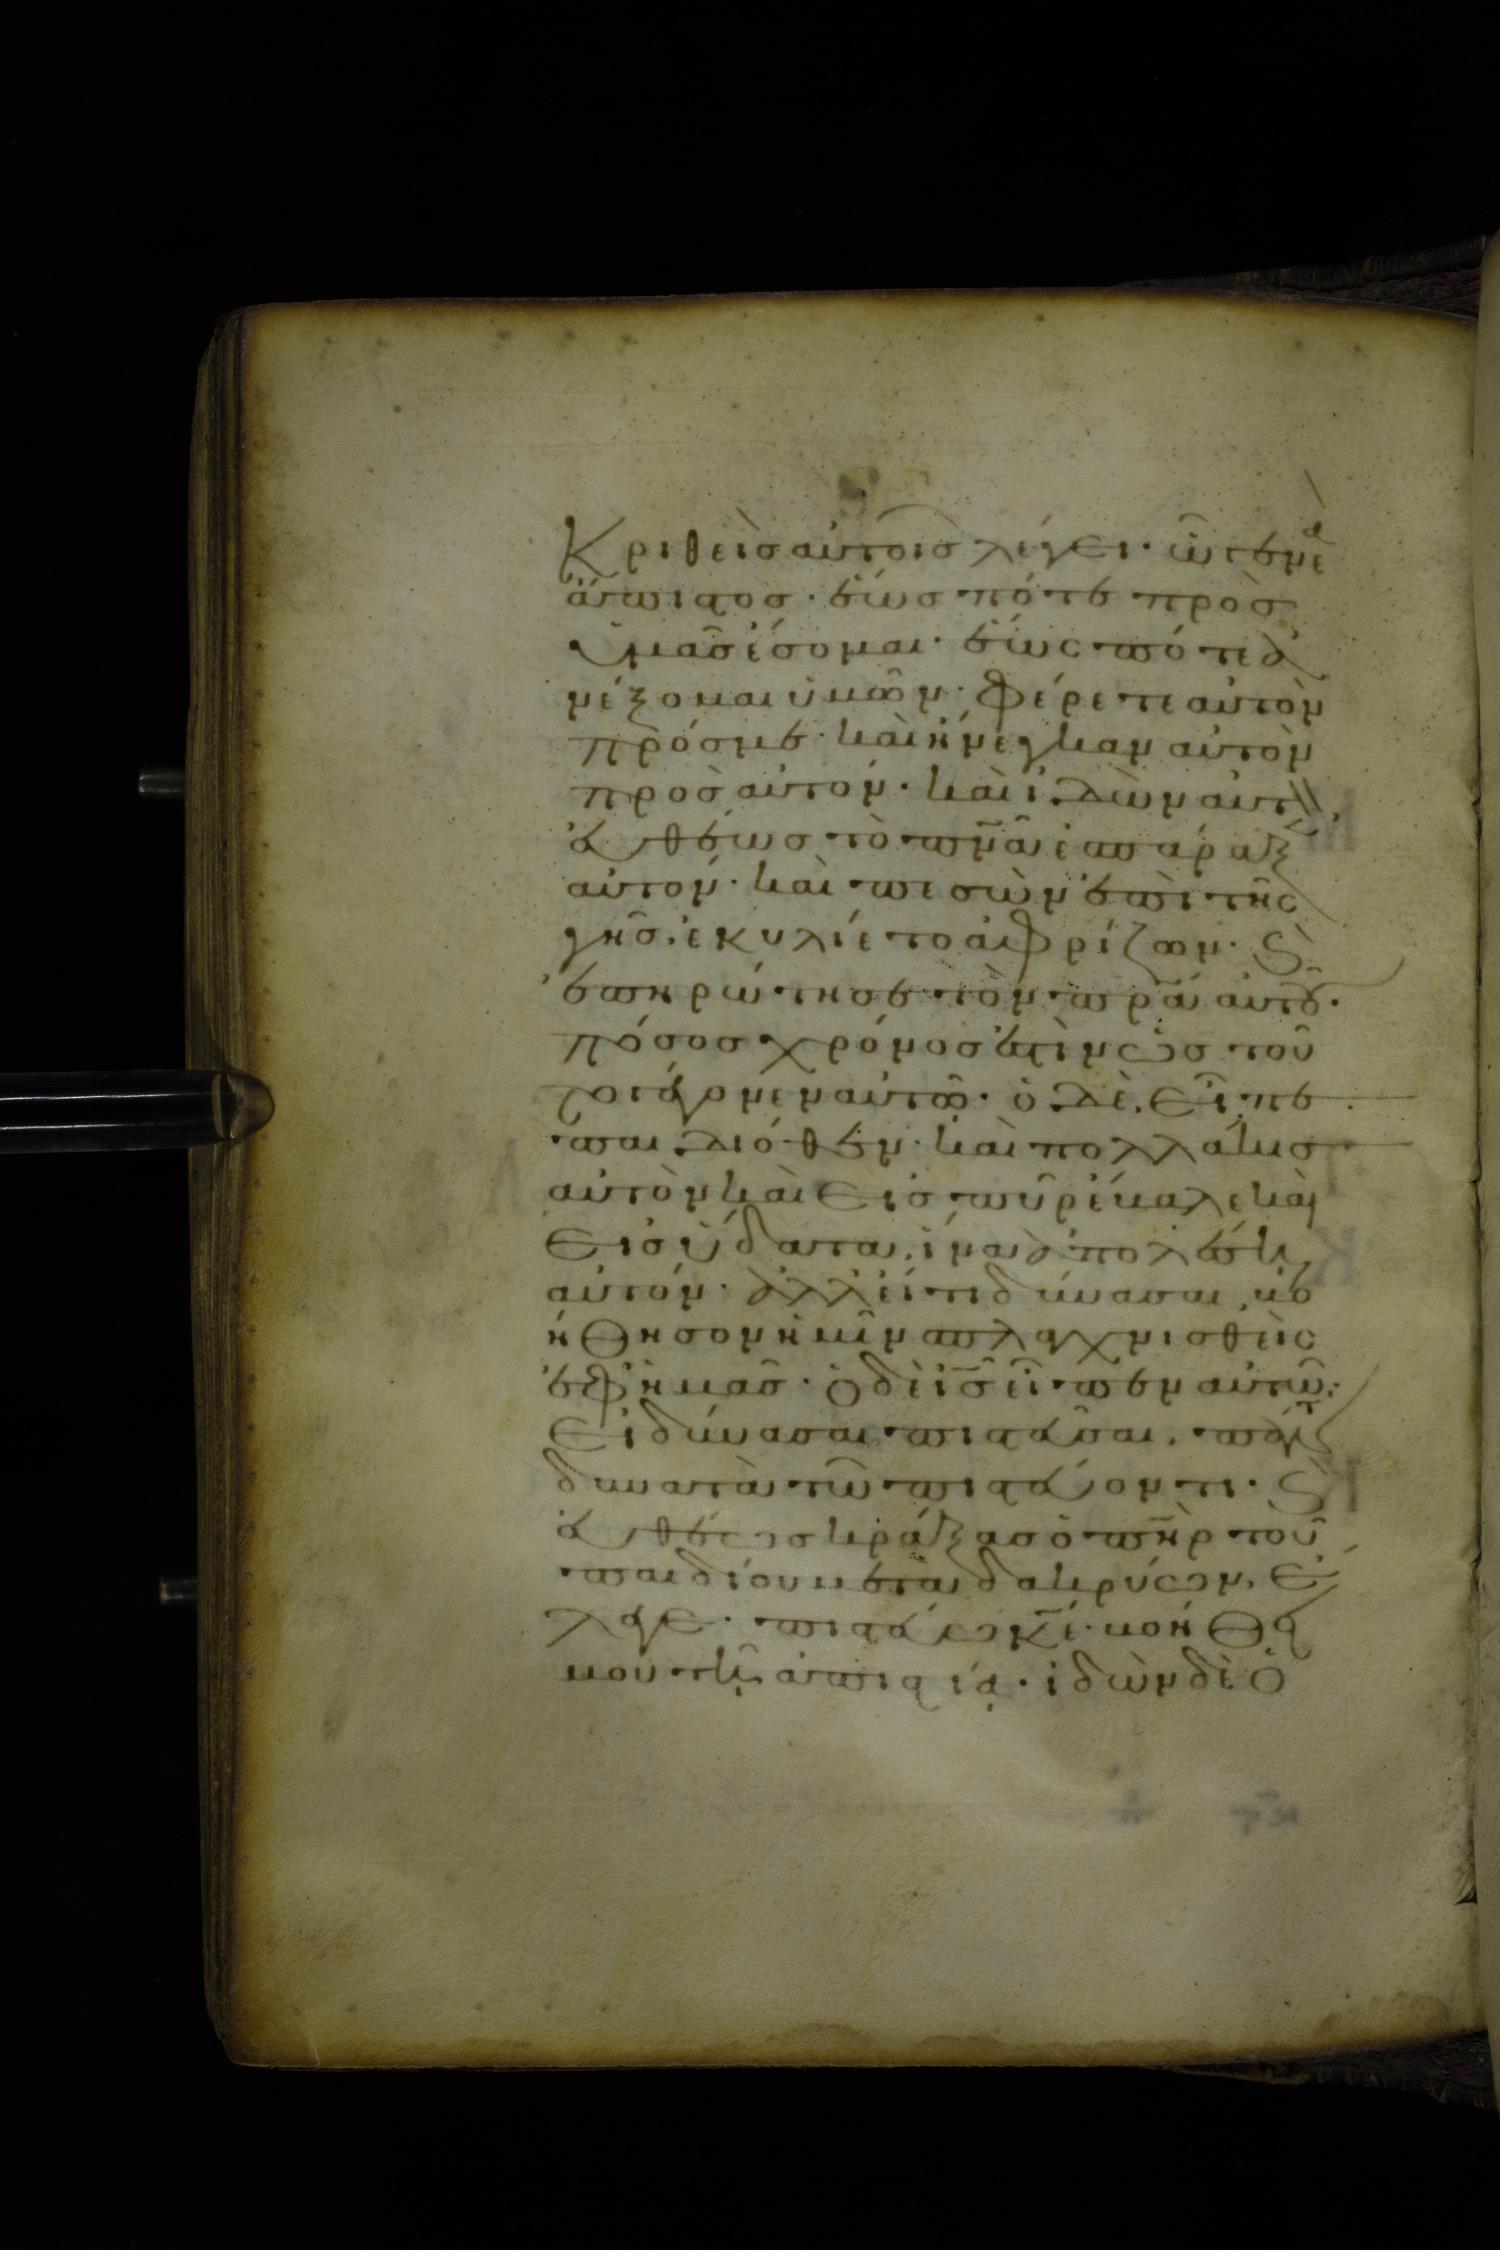 Κριθεὶσ αὐτοῖσ λέγει· ὦ γενεὰ
ἄπιστος· ἕωσ πότε πρὸσ
ὑμᾶσ ἔσομαι· ἕως πότε ἀ
νέξομαι ὑμῶν· Φέρετε αὐτὸν
πρόσ με· καὶ ἤνεγκαν αὐτὸν
πρὸσ αὐτόν· καὶ ἰδὼν αὐτ
ἐυθέωσ τὸ πν̅α ἐσπάραξ
αὐτόν· καὶ πεσὼν ἐπὶ τῆς
γῆσ. ἐκυλίετο ἀφρίζων· Ϗ
ἐπηρώτησε τὸν πρ̅α αὐτοῦ·
πόσοσ χρόνοσ ἐστὶν ὡσ τοῦ
το γέγονεν αὐτῶ· ὁ δὲ. εἶπε
παιδιόθεν· καὶ πολλάκισ
αὐτὸν καὶ εἰσ πῦρ ἔβαλε καὶ
εἰσ ὕδατα, ἵνα ἀπολέση
αὐτόν· ἀλλ' εἴ τι δύνασαι, βο
ήθησον ἡμῖν σπλαγχνισθεὶς
ἐφ' ἡμᾶσ· ὁ δὲ ι̅σ εἶπεν αὐτῶ:
Εἰ δύνασαι πιστεῦσαι, πάντ
δυνατὰ τῶ πιστεύοντι· Ϗ
ἐυθέωσ κράξασ ὁ πη̅ρ τοῦ
παιδίου μετὰ δακρύων, ἔ
λεγε· πιστεύω κ̅ε· βοήθει
μου τῆ ἀπιστία· ἰδὼν δὲ ὁ